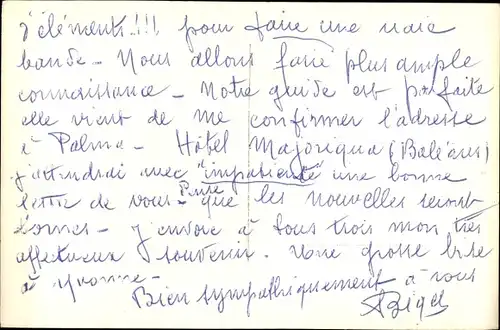 d'éléments!!! pour faire une vraie
bande - Nous allons faire plus ample
connaissance - Notre guide est parfaite
elle vient de me confirmer l'adresse
à Palma - Hôtel Majorique (Baléares)
j'attendrai avec "impatience" une bonne
lettre de vous - que les nouvelles seront
bonnes - J'envoie à tous trois mon très
affectueux souvenir. Une grosse bise
à Yvonne -
Bien sympathiquement à vous